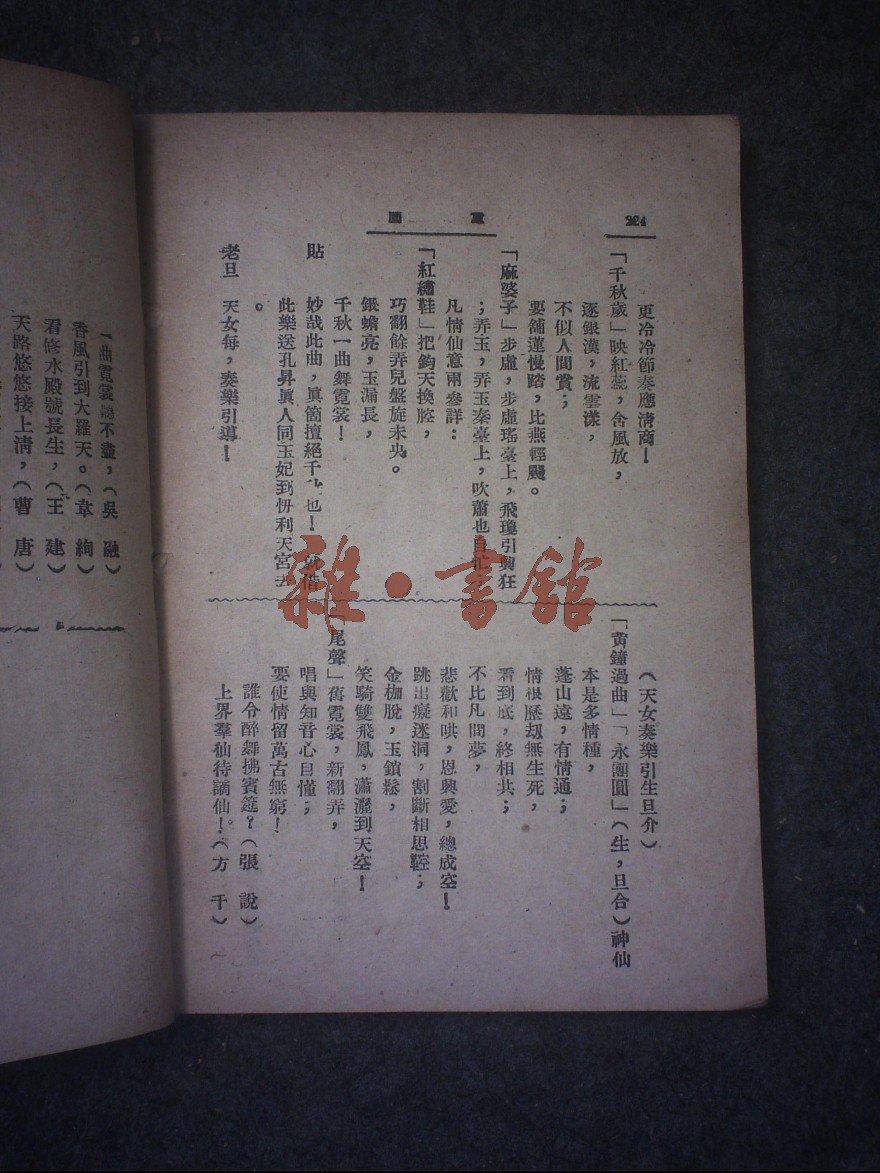 224
重圓
更冷冷節奏應清商！
「千秋歲」映紅蕊，含風放，
逐銀漢，流雲漾，
不似人間賞；
要舖蓮慢踏，比燕輕颺。
「麻婆子」步虛，步虛瑤臺上，飛瓊引興狂
；弄玉，弄玉秦臺上，吹蕭也自忙；
凡情仙意兩參詳：
「紅繡鞋」把鈞天換腔，
巧翻餘弄兒盤旋未央。
銀蟾亮，玉漏長，
千秋一曲舞霓裳！
貼　妙哉此曲，眞箇擅絕千　也！就借
此樂送孔昇眞人同玉妃到忉利天宮去
。
老旦　天女每，奏樂引導！
（天女奏樂引生旦介）
「黃鐘過曲」「永團圓」（生，旦合）神仙
本是多情種，
蓬山遠，有情通；
情根歷刼無生死，
看到底，終相共；
不比凡間夢，
悲歡和哄，恩與愛，總成空！
跳出癡迷洞，割斷相思鞚；
金枷脫，玉鎖鬆，
笑騎雙飛鳳，瀟灑到天空！
「尾聲」舊霓裳，新翻弄，
唱與知音心自懂；
要使情留萬古無窮！
誰令醉舞拂賓筵？（張說）
上界羣仙待謫仙！（方千）
一曲霓裳聽不盡，（吳融）
香風引到大羅天。（韋絢）
看修水殿號長生，（王建）
天路悠悠接上清，（曹唐）
雜·書館